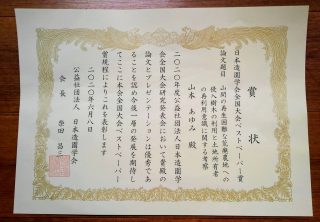 賞状
日本造園学会全国大会ベストペーパー賞
論文題目 山間の再生困難な荒廃農地への
侵入樹木の利用と土地所有者
の再利用意識に関する考察
山本 あゆみ 殿
二〇二〇年度公益社団法人日本造園学
会全国大会研究発表会において貴殿の
論文とプレゼンテーションは優秀であ
ることを認め今後一層の発展を期待し
てここに本会全国大会ベストペーパー
賞規程によりこれを表彰します
二〇二〇年六月八日
公益社団法人 日本造園学会
会長 柴田 昌三